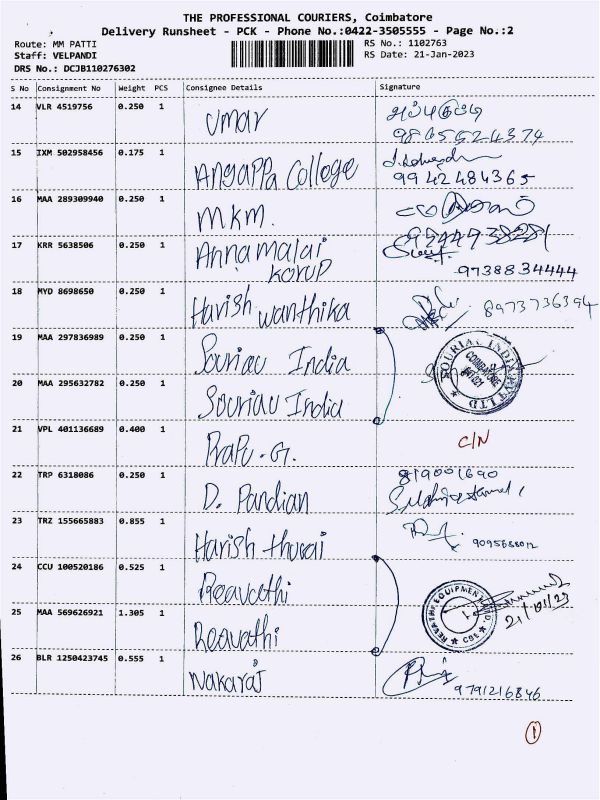 THE PROFESSIONAL COURIERS, Coimbatore
Delivery Runsheet - PCK - Phone No.:0422-3505555 - Page No.:2
Route: MM PATTI RS No.: 1102763
Staff: VELPANDI RS Date: 21-Jan-2023
DRS No.: DCJB110276302
S No Consignment No Weight PCS Consignee Details Signature
14 VLR 4519756 0.250 1 Umar
15 IXM 502958456 0.175 1 Angappa College
9942484365
16 MAA 289309940 0.250 1 MKM.
17 KRR 5638506 0.250 1 Annamalai
Korup 9738834444
18 MYD 8698650 0.250 1 Harish wanthika 8973736394
19 MAA 297836989 0.250 1 Souriau India
SOURIAU INDIA PVT LTD
COIMBATORE
641021
20 MAA 295632782 0.250 1 Souriau India
21 VPL 401136689 0.400 1 Prapu . G. C/N
22 TRP 6318086 0.250 1 D. Pandian 819001690
23 TRZ 155665883 0.855 1 Harish thurai
24 CCU 100520186 0.525 1 Reavathi
25 MAA 569626921 1.305 1 Reavathi 21/01/23
CBE
26 BLR 1250423745 0.555 1 Nakaraj 9791216846
1